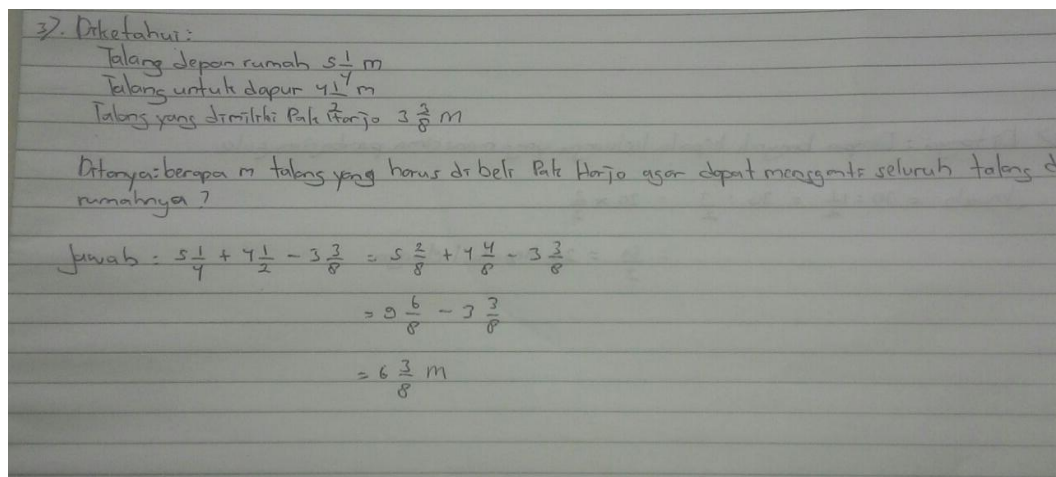 3). Diketahui:
Talang depan rumah 5 1/4 m
Talang untuk dapur 4 1/2 m
Talang yang dimiliki Pak Harjo 3 3/8 m
Ditanya: berapa m talang yang harus di beli Pak Harjo agar dapat mengganti seluruh talang d
rumahnya?
Jawab = 5 1/4 + 4 1/2 - 3 3/8 = 5 2/8 + 4 4/8 - 3 3/8
= 9 6/8 - 3 3/8
= 6 3/8 m